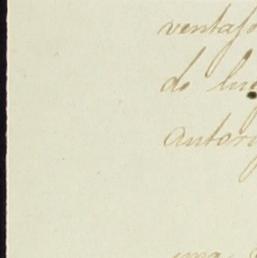 ventajo
do lug
autori
una